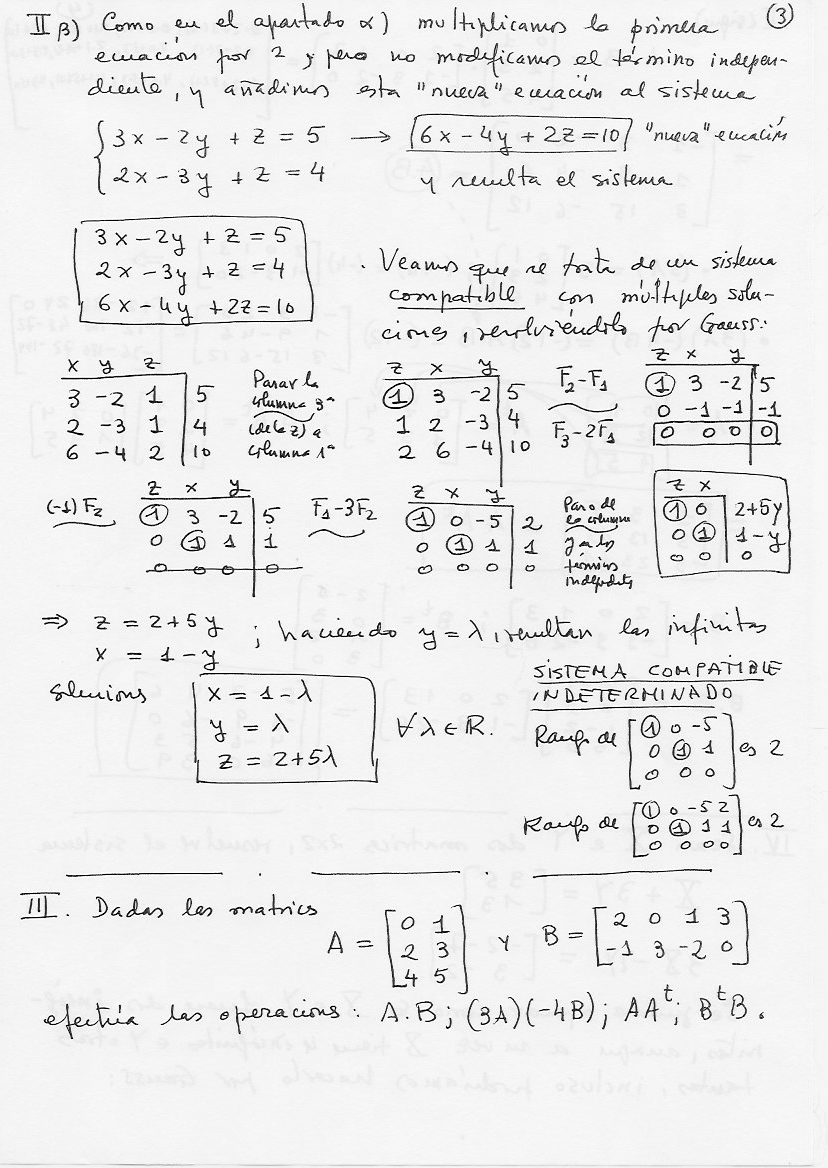 ③
II β) Como en el apartado α) multiplicamos la primera
ecuación por 2 y pero no modificamos el término indepen-
diente, y añadimos esta "nueva" ecuación al sistema
3x - 2y + z = 5 → 6x - 4y + 2z = 10 "nueva" ecuación
2x - 3y + z = 4 y resulta el sistema
3x - 2y + z = 5
2x - 3y + z = 4
6x - 4y + 2z = 10
. Veamos que se trata de un sistema
compatible con múltiples solu-
ciones, resolviéndolo por Gauss:
x y z
3 -2 1 | 5
2 -3 1 | 4
6 -4 2 | 10
Pasar la
columna 3ª
(de la z) a
columna 1ª
z x y
① 3 -2 | 5
1 2 -3 | 4
2 6 -4 | 10
F2 - F1
F3 - 2F1
z x y
① 3 -2 | 5
0 -1 -1 | -1
0 0 0 | 0
(-1)F2
z x y
① 3 -2 | 5
0 ① 1 | 1
0 0 0 | 0
F1 - 3F2
z x y
① 0 -5 | 2
0 ① 1 | 1
0 0 0 | 0
Paso de
la columna
y a los
términos
independts
z x
① 0 | 2+5y
0 ① | 1-y
0 0 | 0
⇒ z = 2+5y ; haciendo y = λ, resultan las infinitas
x = 1 - y
soluciones
x = 1 - λ
y = λ
z = 2+5λ
∀ λ ∈ R.
SISTEMA COMPATIBLE
INDETERMINADO
Rango de [① 0 -5
0 ① 1
0 0 0] es 2
Rango de [① 0 -5 2
0 ① 1 1
0 0 0 0] es 2
III. Dadas las matrices
A = [0 1
2 3
4 5]
y B = [2 0 1 3
-1 3 -2 0]
efectúa las operacions: A.B; (3A)(-4B); AAᵗ; BᵗB.